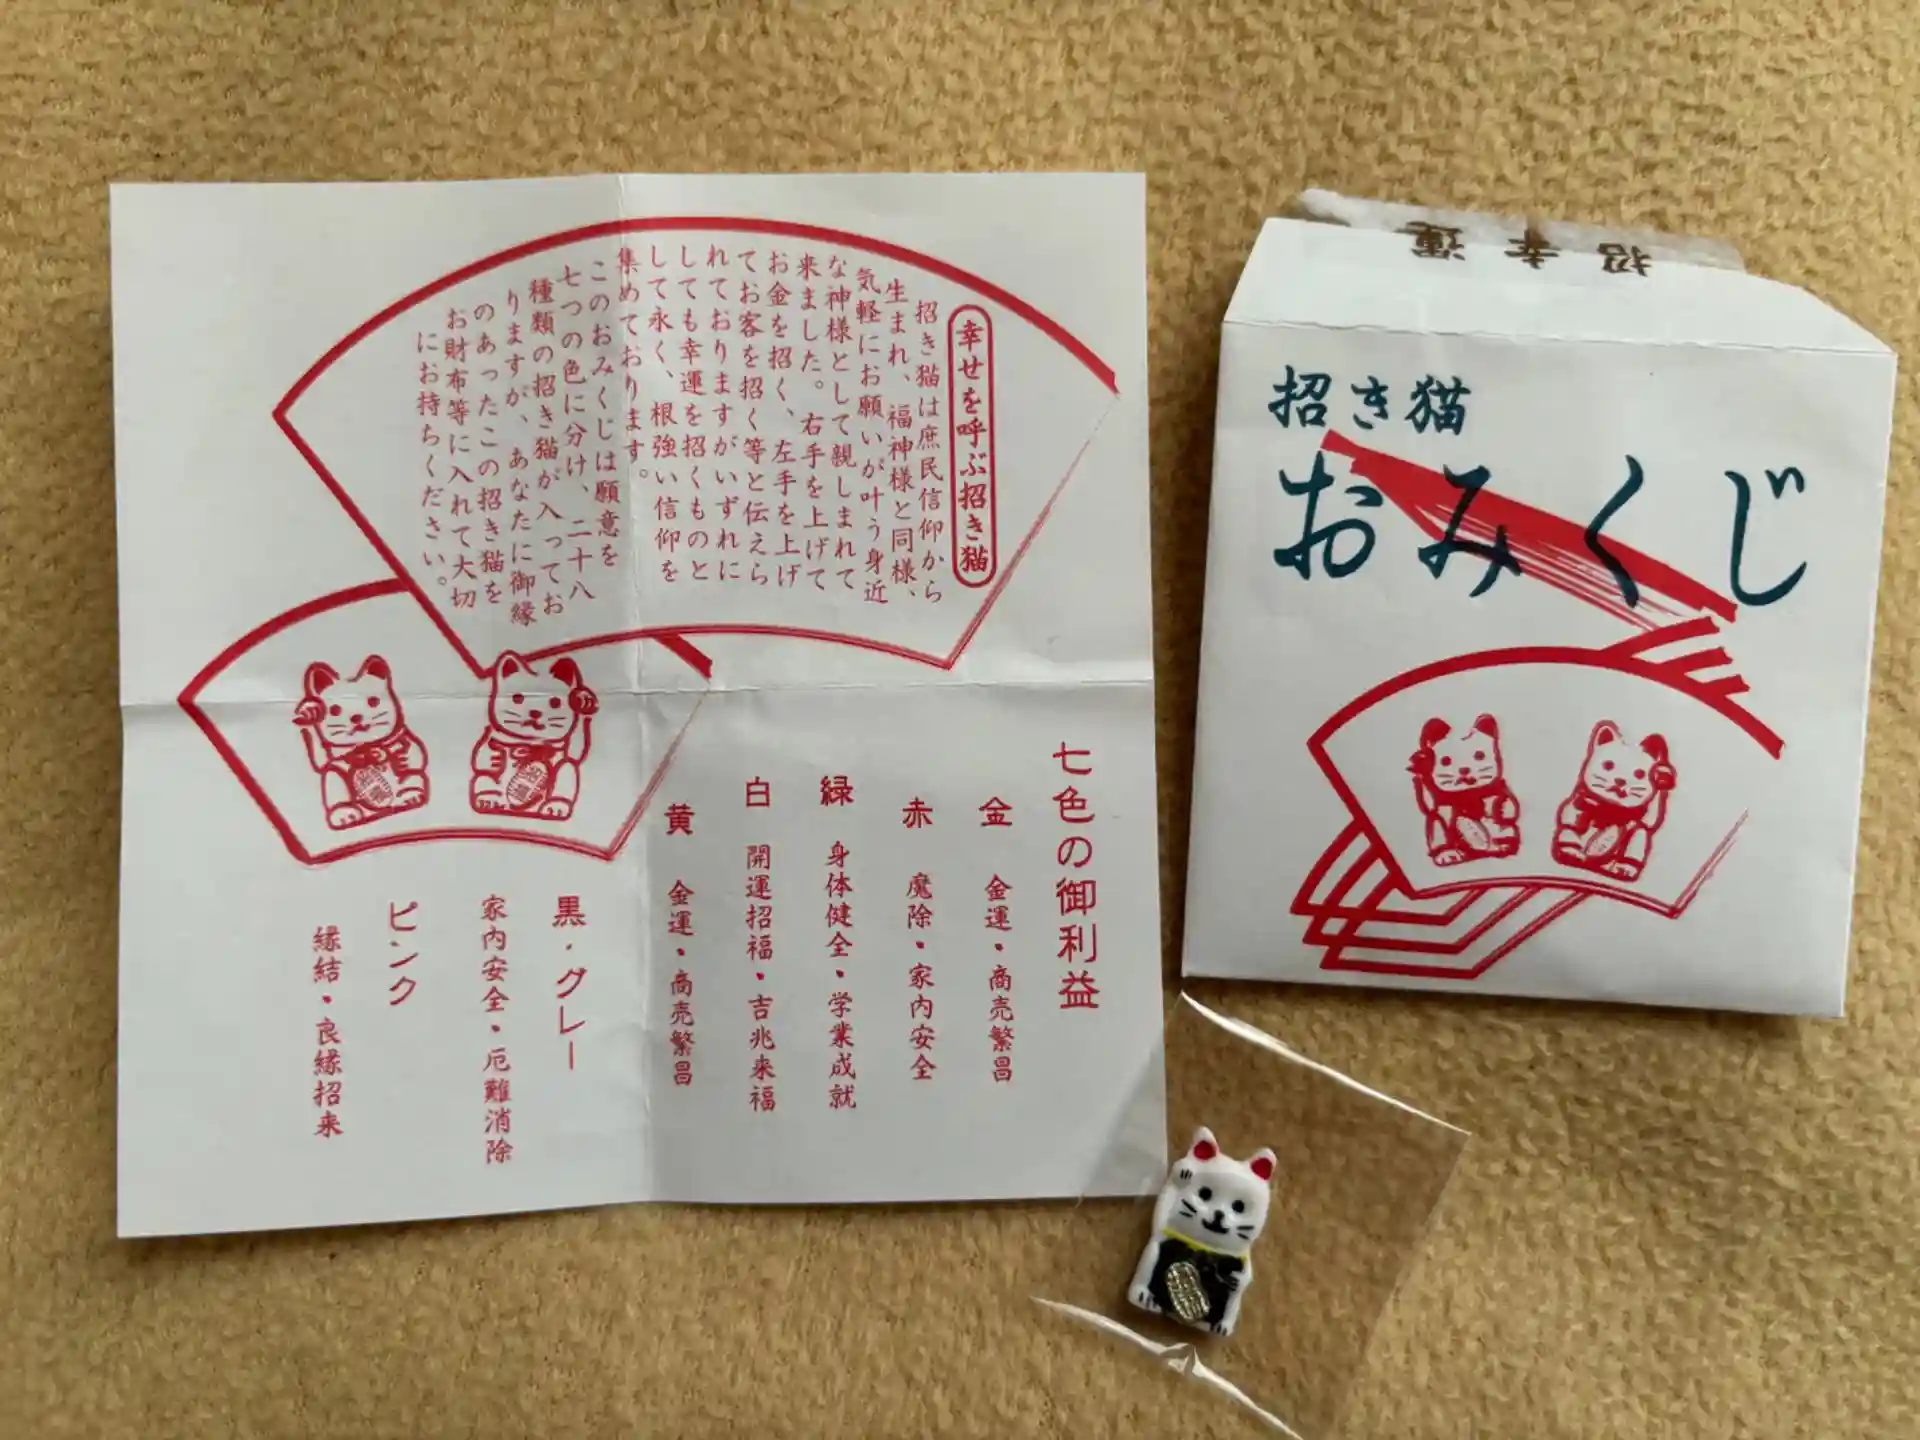 幸せを呼ぶ招き猫
招き猫は庶民信仰から
生まれ、福神様と同様、
気軽にお願いが叶う身近
な神様として親しまれて
来ました。右手を上げて
お金を招く、左手を上げ
てお客を招く等と伝えら
れておりますがいずれに
しても幸運を招くものと
して永く、根強い信仰を
集めております。
このおみくじは願意を
七つの色に分け、二十八
種類の招き猫が入ってお
りますが、あなたに御縁
のあったこの招き猫を
お財布等に入れて大切
にお持ちください。
七色の御利益
金 金運・商売繁昌
赤 魔除・家内安全
緑 身体健全・学業成就
白 開運招福・吉兆来福
黄 金運・商売繁昌
黒・グレー
家内安全・厄難消除
ピンク
縁結・良縁招来
招幸運
招き猫
おみくじ